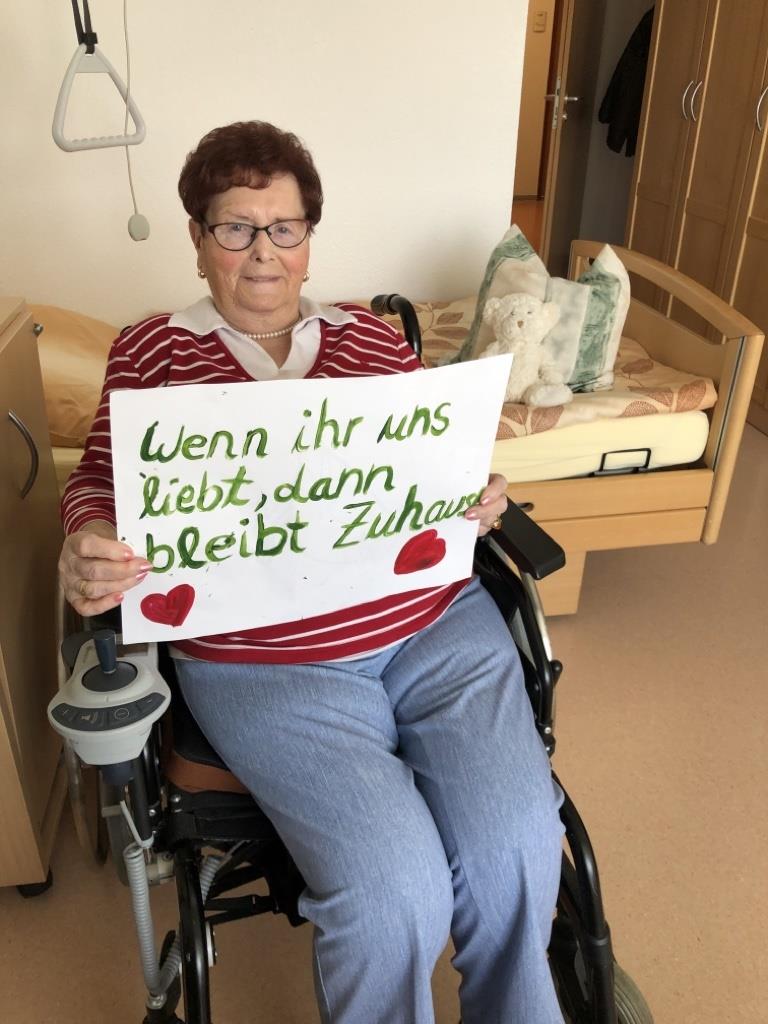 Wenn ihr uns
liebt, dann
bleibt Zuhause